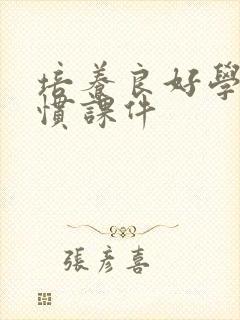 培養良好學
慣課件
張彥喜